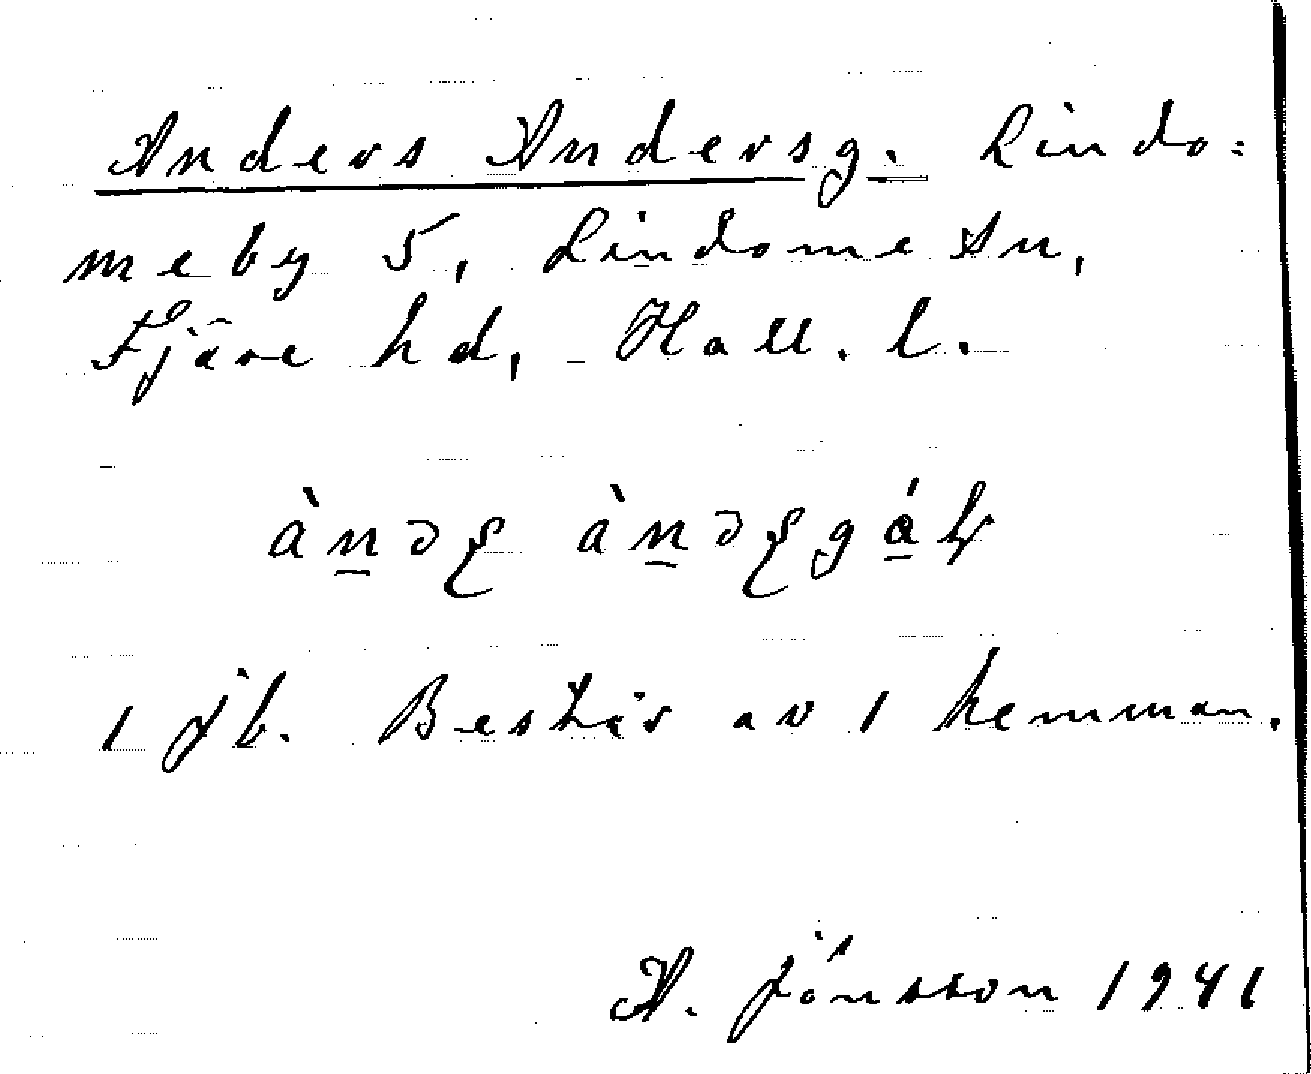 Anders Andersg. Lindo=
meby 5, Lindome sn,
Fjäre hd, Hall. l.
1 jb. Består av 1 hemman.
A. Jönsson 1941